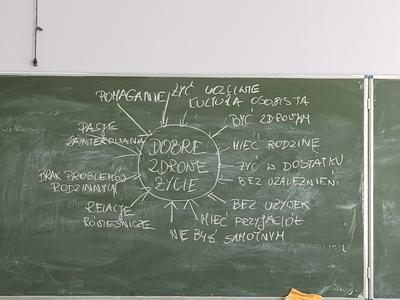 POMAGANIE
ŻYĆ UCZCIWIE
KULTURA OSOBISTA
BYĆ ZDROWYM
PASJE
ZAINTEROWANIA
DOBRE
ZDROWE
ŻYCIE
MIEĆ RODZINĘ
ŻYĆ W DOSTATKU
BEZ UZALEŻNIEŃ
BRAK PROBLEMÓW
RODZINNYCH
BEZ UŻYWEK
RELACJE
RÓWIEŚNICZE
MIEĆ PRZYJACIÓŁ
NIE BYĆ SAMOTNYM